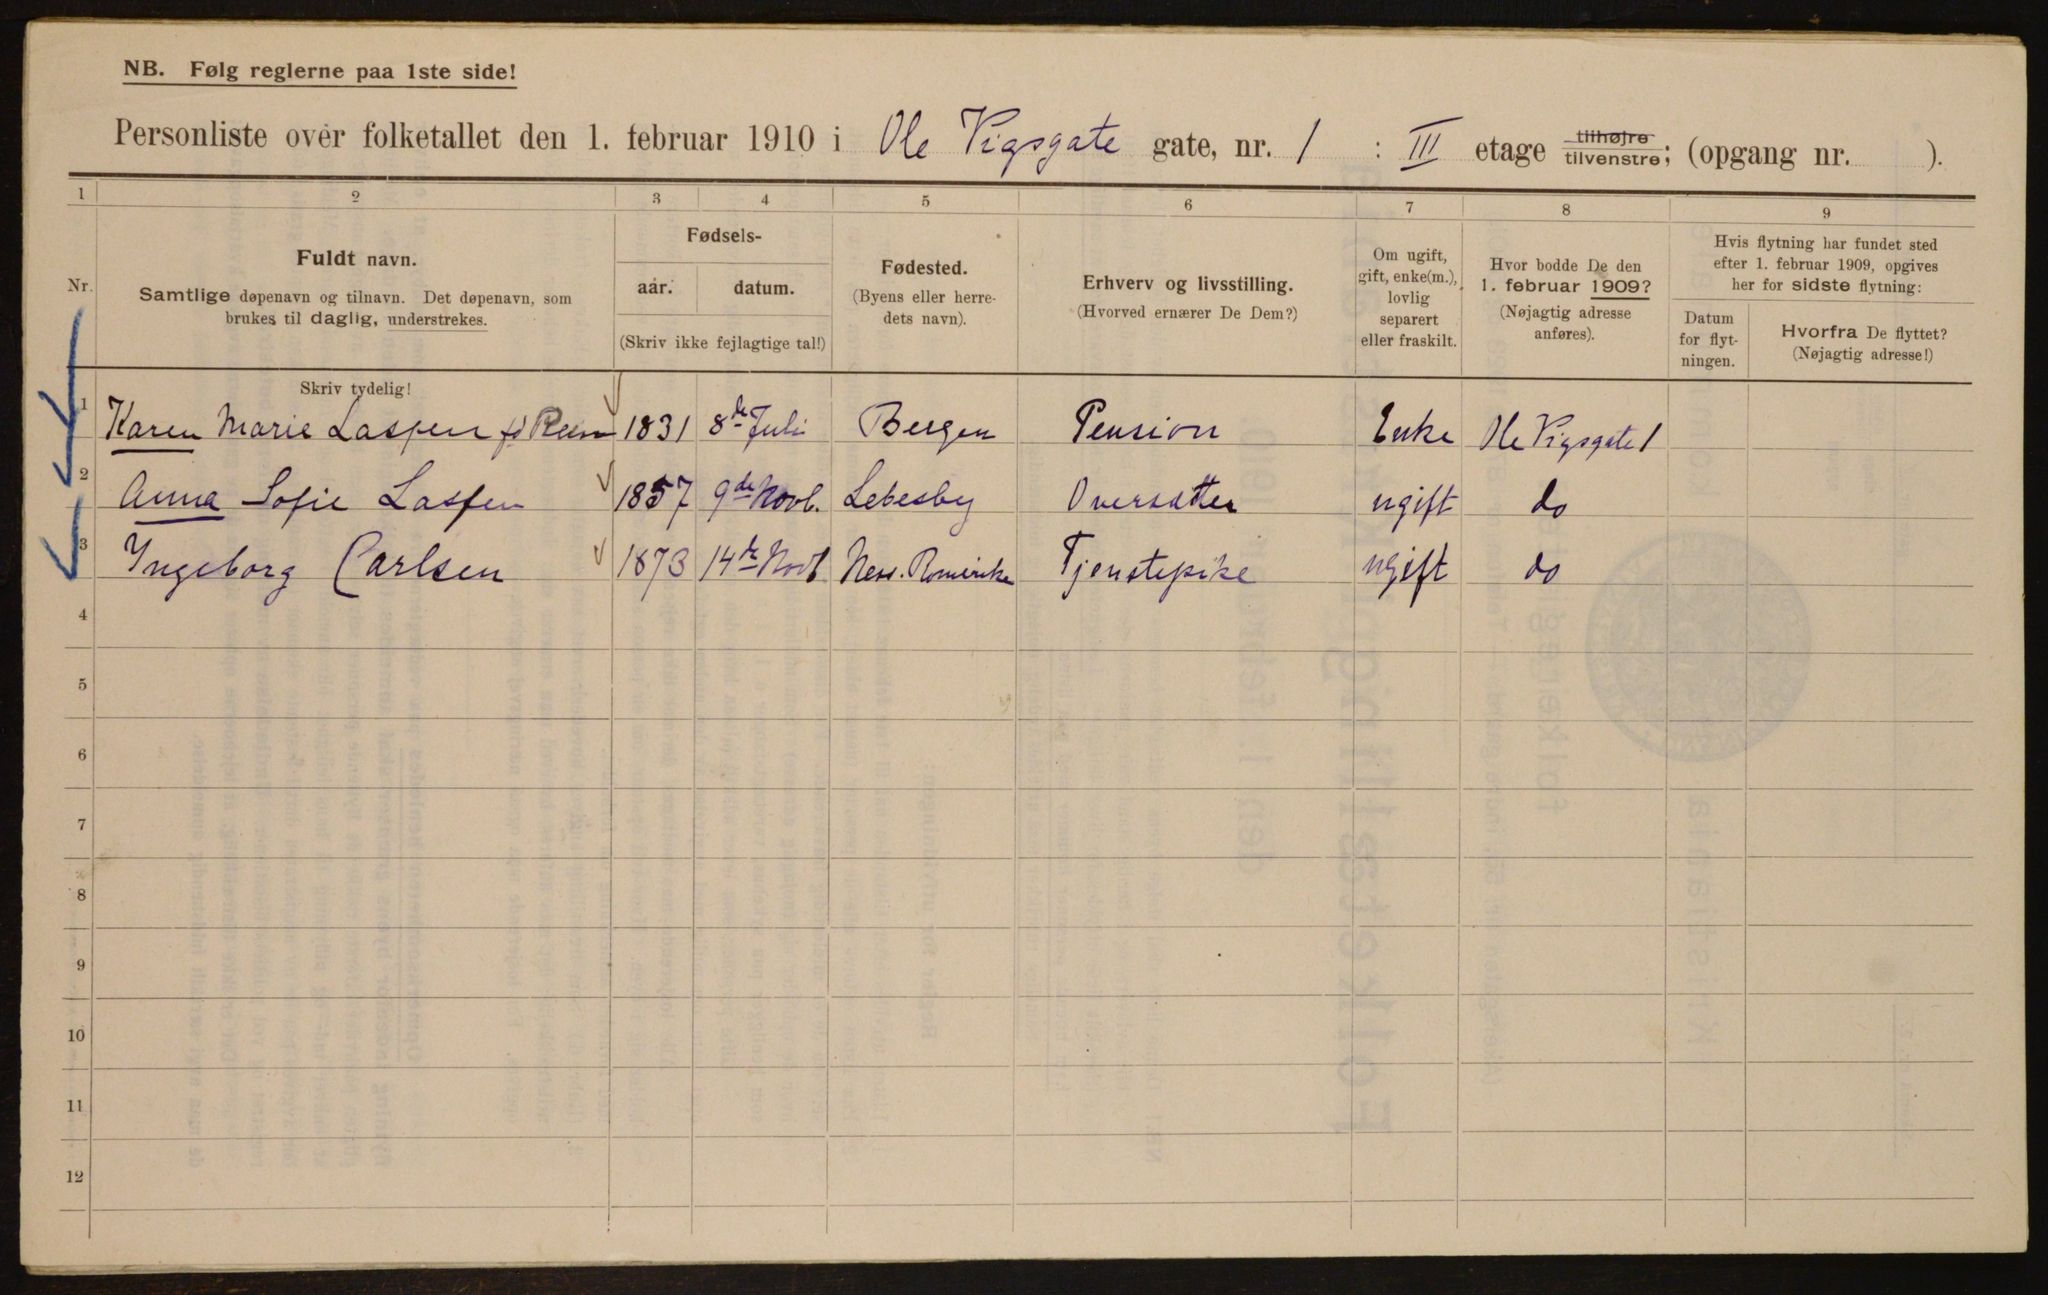 NB. Følg reglerne paa 1ste side!
Personliste over folketallet den 1. februar 1910 i Ole Vigsgate gate, nr. 1 : III etage tilhøjre tilvenstre; (opgang nr. ).
1 2 3 4 5 6 7 8 9
Nr.
Fuldt navn.
Samtlige døpenavn og tilnavn. Det døpenavn, som
brukes til daglig, understrekes.
Skriv tydelig!
Fødsels-
aar. datum.
(Skriv ikke fejlagtige tal!)
Fødested.
(Byens eller herre-
dets navn).
Erhverv og livsstilling.
(Hvorved ernærer De Dem?)
Om ugift,
gift, enke(m.),
lovlig
separert
eller fraskilt.
Hvor bodde De den
1. februar 1909?
(Nøjagtig adresse
anføres).
Hvis flytning har fundet sted
efter 1. februar 1909, opgives
her for sidste flytning:
Datum
for flyt-
ningen.
Hvorfra De flyttet?
(Nøjagtig adresse!)
1 Karen Marie Lassen fd 1831 8de Juli Bergen Pension Enke Ole Vigsgate 1
2 Anna Sofie Lassen 1857 9de Novb. Lebesby Oversætter ugift do
3 Ingeborg Carlsen 1873 14de Novb Ness. Romerike Tjenstepike ugift do
4
5
6
7
8
9
10
11
12